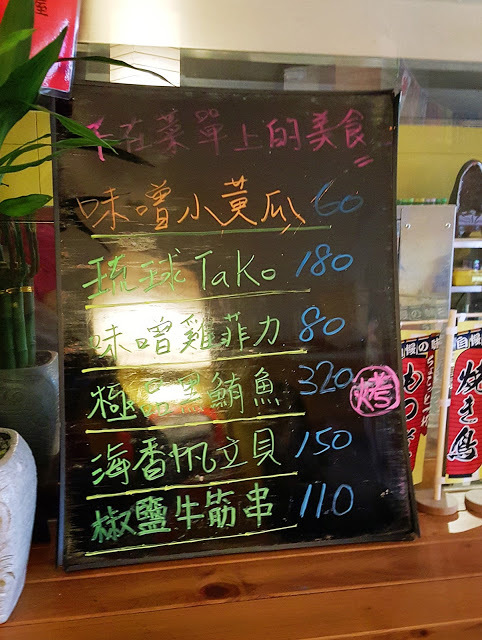 不在菜單上的美食
味噌小黃瓜 60
琉球Tako 180
味噌雞菲力 80
極品黑鮪魚 320 烤
海香帆立貝 150
椒鹽牛筋串 110
自慢の味
焼き鳥